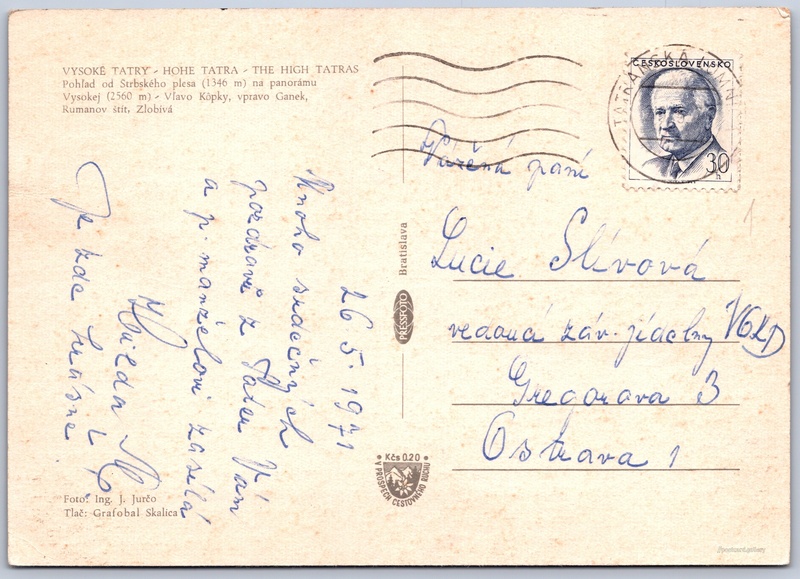 VYSOKÉ TATRY - HOHE TATRA - THE HIGH TATRAS
Pohľad od Štrbského plesa (1346 m) na panorámu
Vysokej (2560 m) - Vľavo Kôpky, vpravo Ganek,
Rumanov štít, Zlobivá
26 5. 1971
Mnoho srdečných
pozdravů z Tater Vám
a p. manželovi zasílá
Hilda
Je zde krásně.
Foto: Ing. J. Jurčo
Tlač: Grafobal Skalica
Bratislava
PRESSFOTO
Kčs 0.20
V PROSPECH CESTOVNÉHO RUCHU
ČESKOSLOVENSKO
30
h
TATRANSKÁ
Vážená paní
Lucie Slívová
vedoucí záv. jídelny
Gregorova 3
Ostrava 1
1